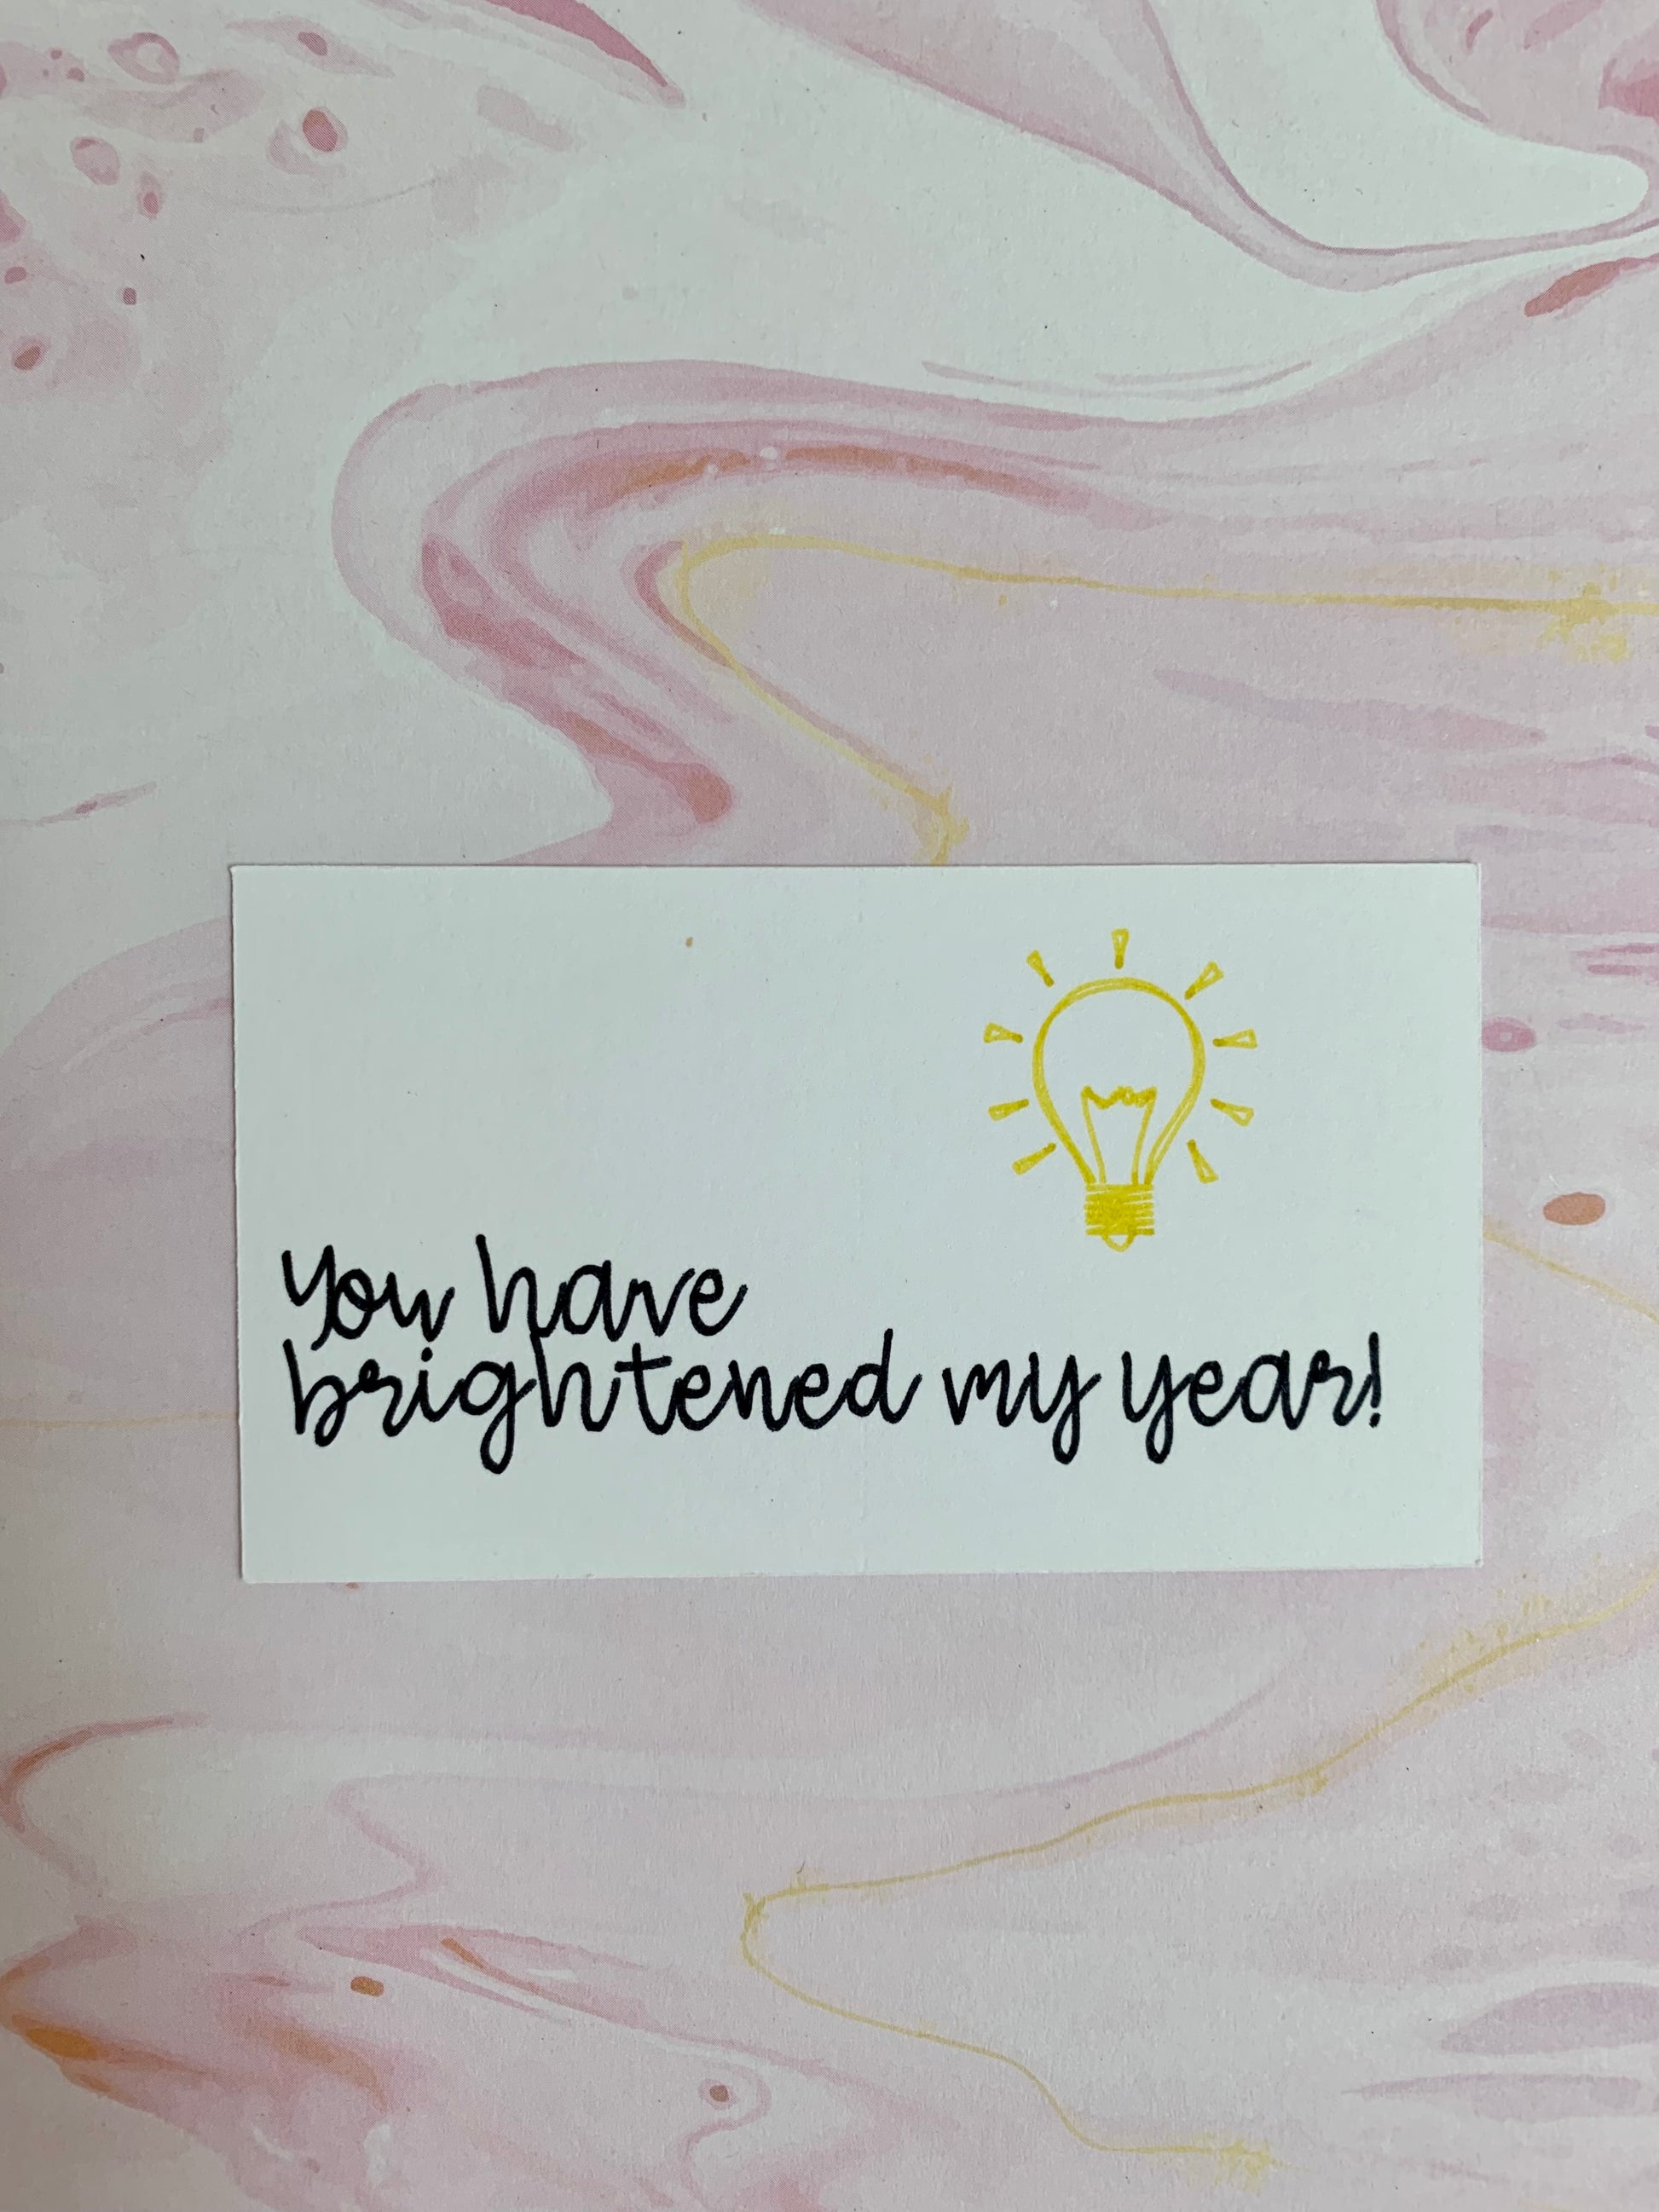 You have
brightened my year!